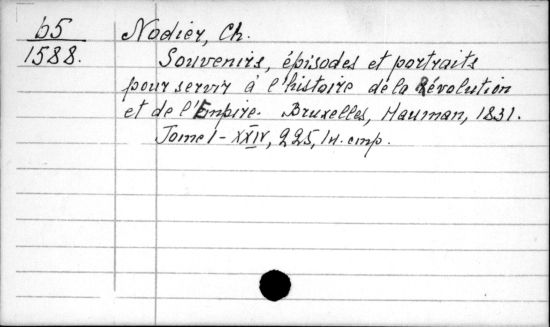 б5 Nodier, Ch.
1588. Souvenirs, épisodes et portraits
pour servir à l'histoire de la Révolution
et de l'Empire. Bruxelles, Hauman, 1831.
Tome I - XXIV, 225, /н. стр.